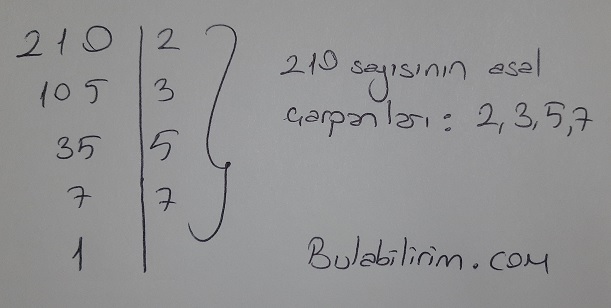 210 | 2
105 | 3
35 | 5
7 | 7
1 |
210 sayısının asal
çarpanları: 2, 3, 5, 7
Bulabilirim.com